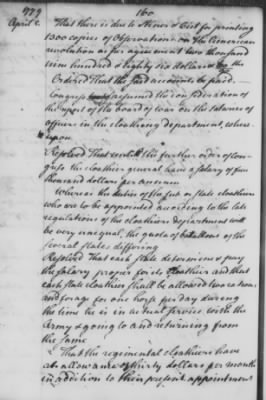 1779
April 2.
160
That there is due to Steiner & Cist for printing
1300 copies of Observations on the American
revolution as per agreement two thousand
nine hundred & eighty six dollars
Ordered That the said accounts be paid.
Congress resumed the consideration of
the report of the board of war on the salaries of
officers in the cloathing department, where-
upon
Resolved That until the further order of Con-
gress the cloathier general have a salary of five
thousand dollars per annum
Whereas the duties of the sub or state cloathiers
who are to be appointed according to the late
regulations of the cloathiers department will
be very unequal, the quota of battalions of the
several states differing
Resolved That each state determine & pay
the salary proper for its cloathier and that
each state cloathier shall be allowed two rations
and forage for one horse per day during
the time he is in actual service with the
Army & going to and returning from
the same
That the regimental cloathiers have
an allowance of thirty dollars per month
in addition to their present appointment